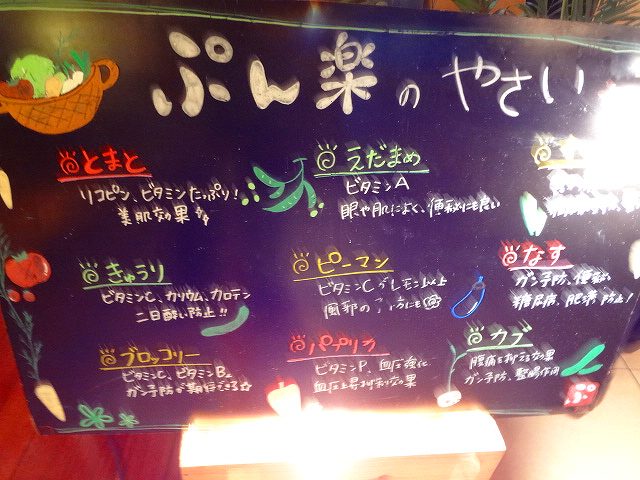 ぷん楽のやさい
とまと
リコピン、ビタミンたっぷり!
美肌効果
えだまめ
ビタミンA
眼や肌によく、便秘にも良い
きゅうり
ビタミンC、カリウム、カロテン
二日酔い防止!!
ピーマン
ビタミンCがレモン以上
風邪の
にも
なす
ガン予防、便秘
糖尿病、肥満防止!
ブロッコリー
ビタミンC、ビタミンB2
ガン予防が期待できる☆
パプリカ
ビタミンP、血圧強化
血圧上昇抑制効果
カブ
腹痛を抑える効果
ガン予防、整腸作用
ぷ